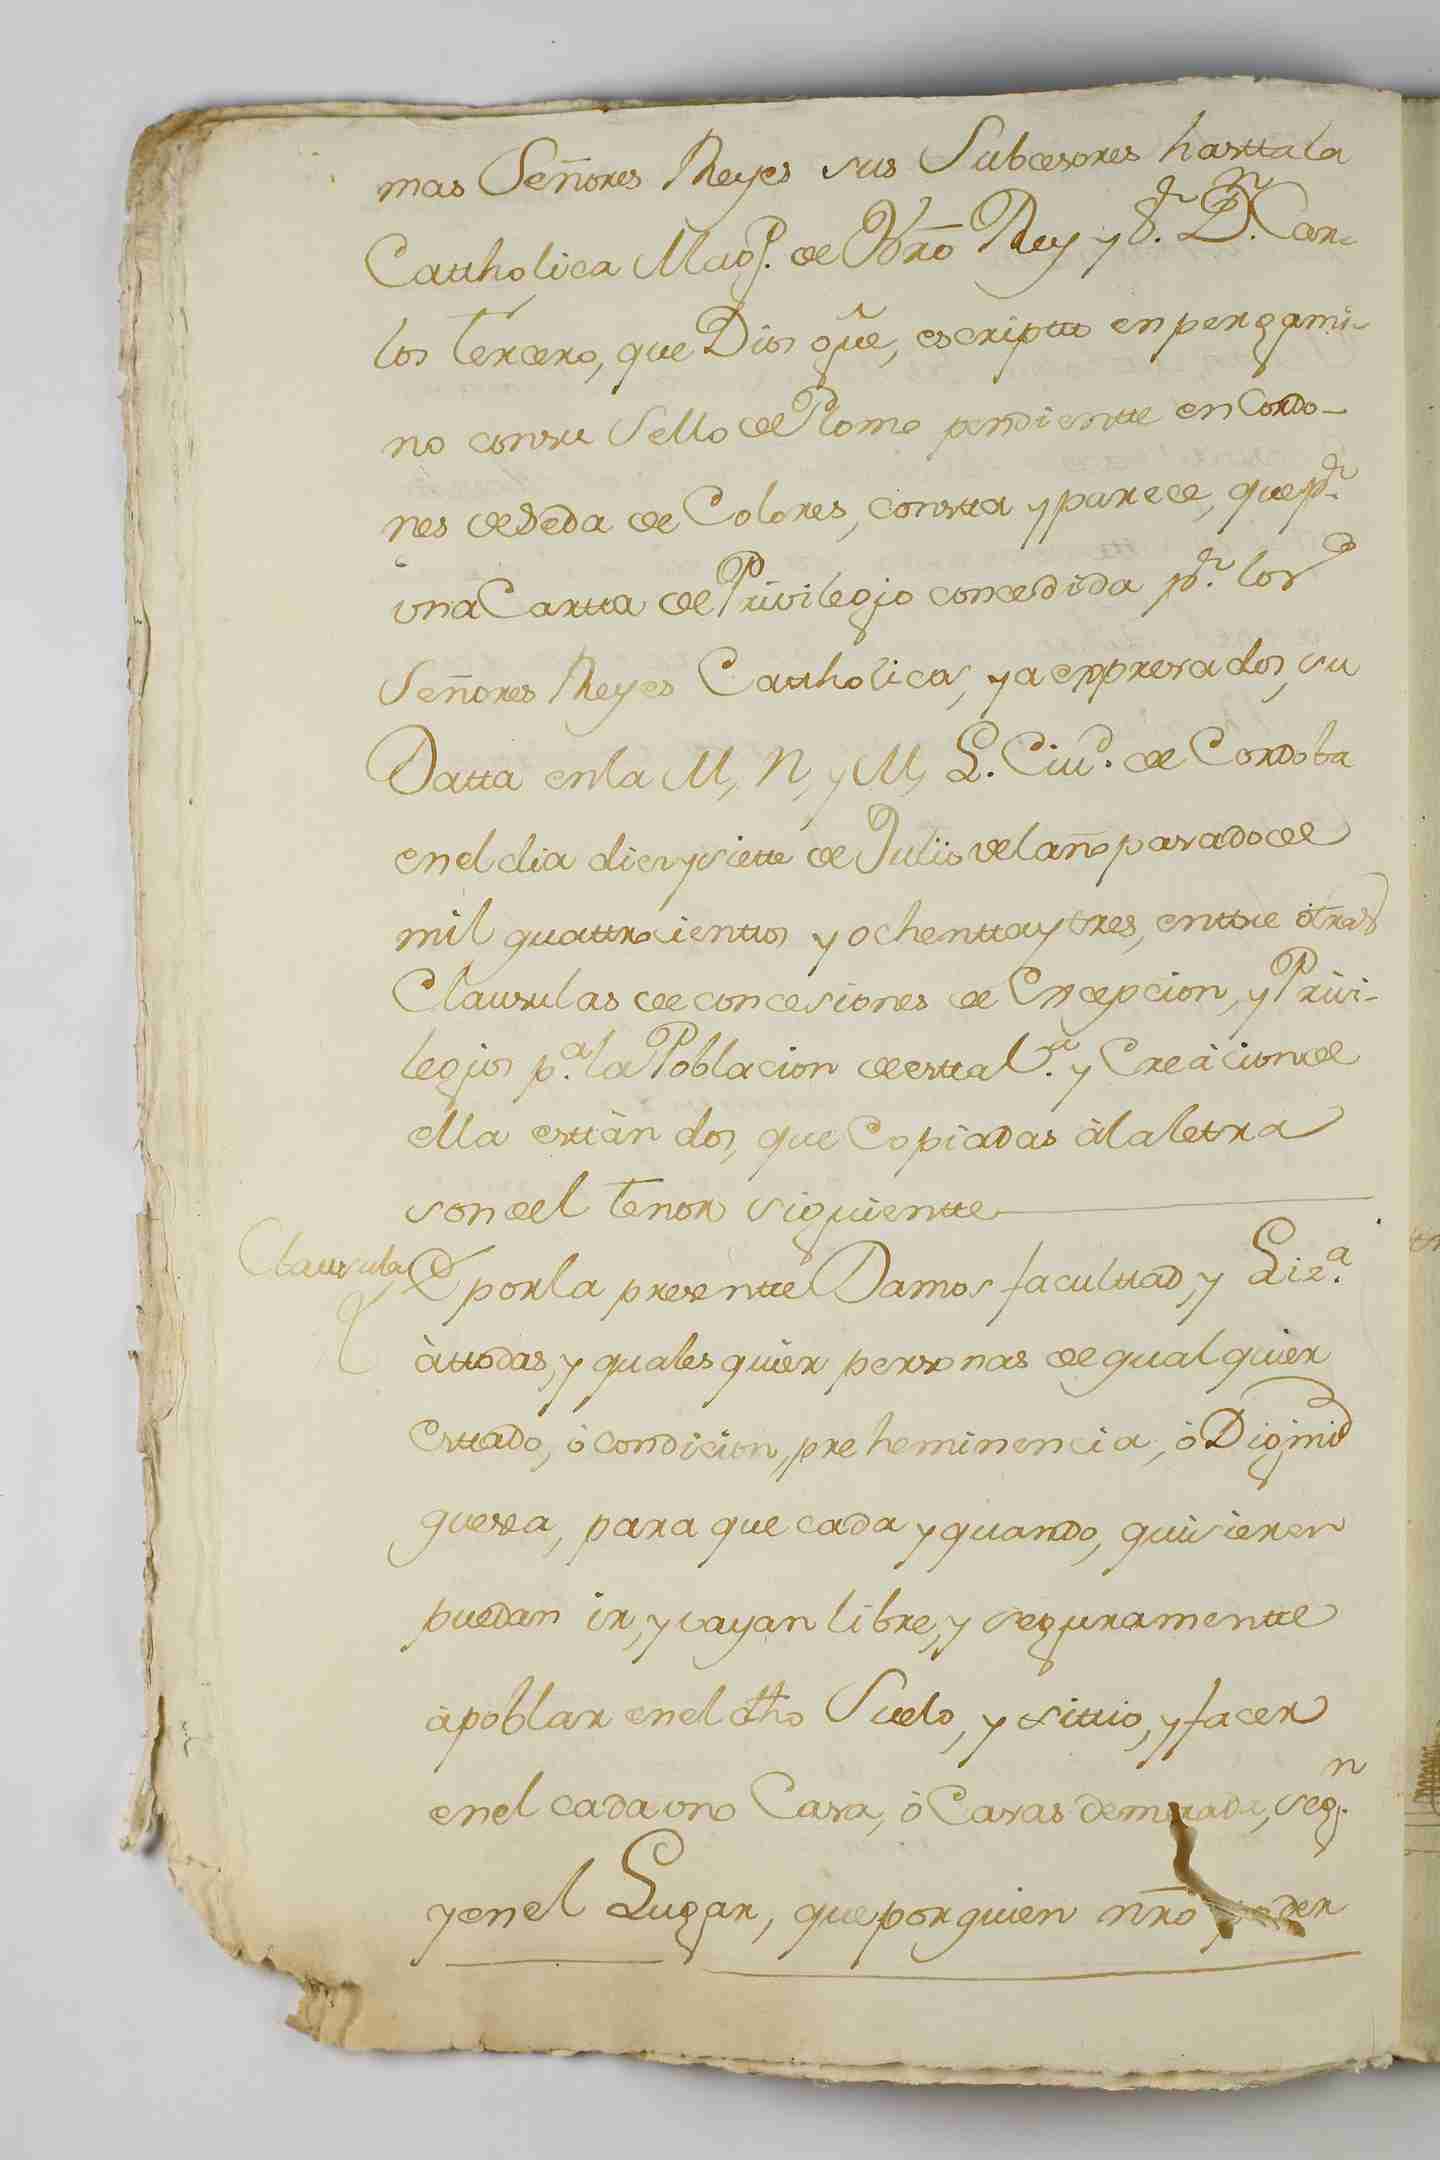 mas Señores Reyes sus Subcesores hastta la
Cattholica Magd. de Nrō Rey y Sr. Dn. Car-
los tercero, que Dios gūe, escriptto en pergami-
no con su Sello de Plomo pendientte en Cordo-
nes de Seda de Colores, constta y parece, que pr.
una Cartta de Privilegio concedida pr. los
Señores Reyes Cattholicos, ya expresados, su
Datta en la M, N, y M, L. Ciud. de Cordoba
en el dia diez y siette de Julio del año pasado de
mil quattrocienttos y ochentta y tres, enttre otras
Clausulas de concesiones de Excepcion, y Privi-
legios pa. la Poblacion de estta Va. y Creàcion de
ella esttàn dos, que Copiadas à la letra
son del tenor siguientte
Clausula
E por la presentte Damos faculttad, y Liza.
à ttodas, y quales quier personas de qual quier
Esttado, ò condicion, preheminencia, ò Dignid
que sea, para que cada y quando, quisieren
puedan ir, y vayan libre, y seguramentte
à poblar en el dho Suelo, y sittio, y facer
en el cada uno Casa, ò Casas de morada, segn.
y en el Lugar, que por quien nrō poder